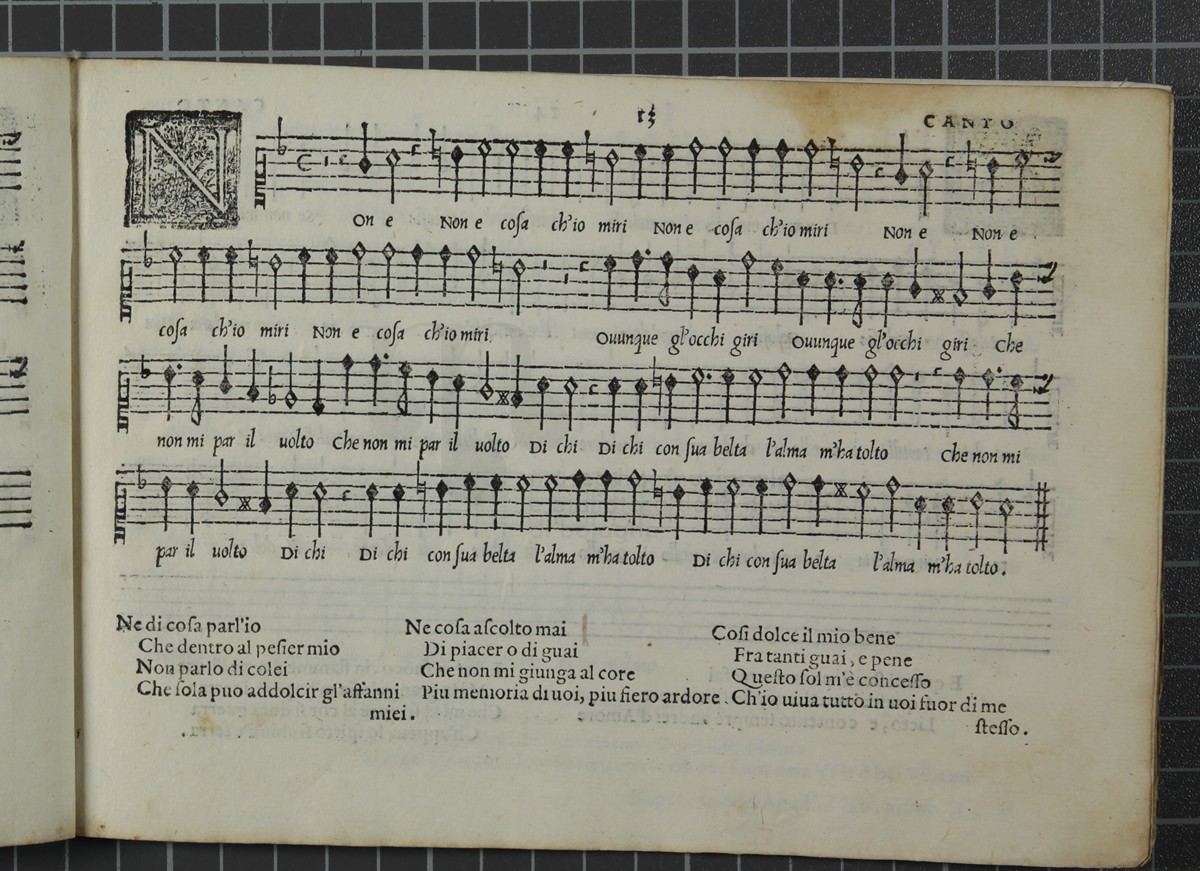 13
CANTO
NOn e Non e coſa ch'io miri Non e coſa ch'io miri Non e Non e
coſa ch'io miri Non e coſa ch'io miri. Ouunque gl'occhi giri Ouunque gl'occhi giri Che
non mi par il uolto Che non mi par il uolto Di chi Di chi con ſua belta l'alma m'ha tolto Che non mi
par il uolto Di chi Di chi con ſua belta l'alma m'ha tolto Di chi con ſua belta l'alma m'ha tolto.
Ne di coſa parl'io
Che dentro al peſier mio
Non parlo di colei
Che ſola puo addolcir gl'affanni
miei.
Ne coſa aſcolto mai
Di piacer o di guai
Che non mi giunga al core
Piu memoria di uoi, piu fiero ardore.
Coſi dolce il mio bene
Fra tanti guai, e pene
Queſto ſol m'è conceſſo
Ch'io uiua tutto in uoi fuor di me
ſteſſo.